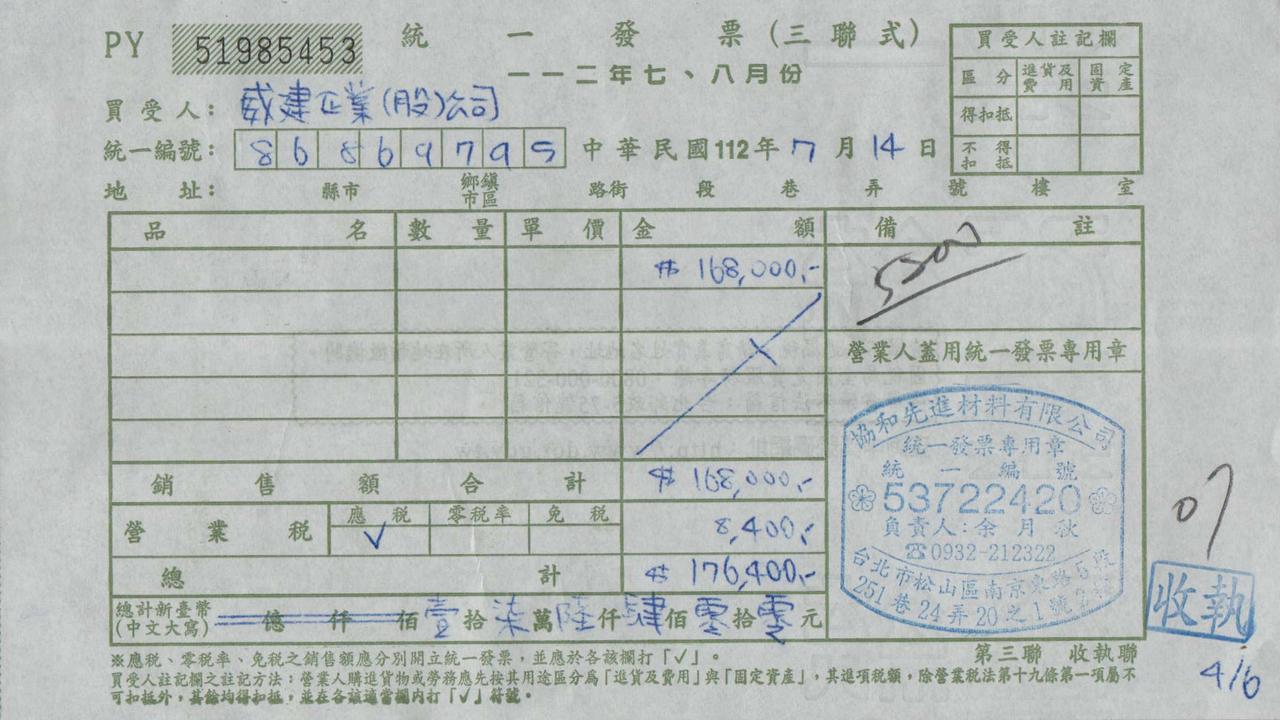 PY 51985453 統一發票(三聯式)
一一二年七、八月份
買受人註記欄
區分 進貨及費用 固定資產
得扣抵
不得扣抵
買受人: 威建企業(股)公司
統一編號: 86869795 中華民國112年7月14日
地址: 縣市 鄉鎮市區 路街 段 巷 弄 號 樓 室
品名 數量 單價 金額 備註
$ 168,000.-
營業人蓋用統一發票專用章
銷售額合計 $ 168,000.-
營業稅 應稅 ✓ 零稅率 免稅 8,400.-
總計 $ 176,400.-
總計新臺幣(中文大寫) 億 仟 佰 壹 拾 柒 萬 陸 仟 肆 佰 零 拾 零 元
協和先進材料有限公司
統一發票專用章
統一編號
53722420
負責人:余月秋
☎0932-212322
台北市松山區南京東路5段
251巷24弄20之1號2樓
07
收執
4/6
第三聯 收執聯
※應稅、零稅率、免稅之銷售額應分別開立統一發票,並應於各該欄打「✓」。
買受人註記欄之註記方法:營業人購進貨物或勞務應先按其用途區分為「進貨及費用」與「固定資產」,其進項稅額,除營業稅法第十九條第一項屬不
可扣抵外,其餘均得扣抵,並在各該適當欄內打「✓」符號。